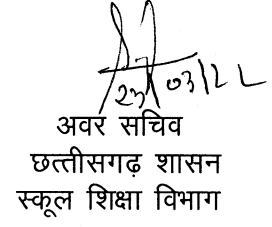 23/03/22
अवर सचिव
छत्तीसगढ़ शासन
स्कूल शिक्षा विभाग